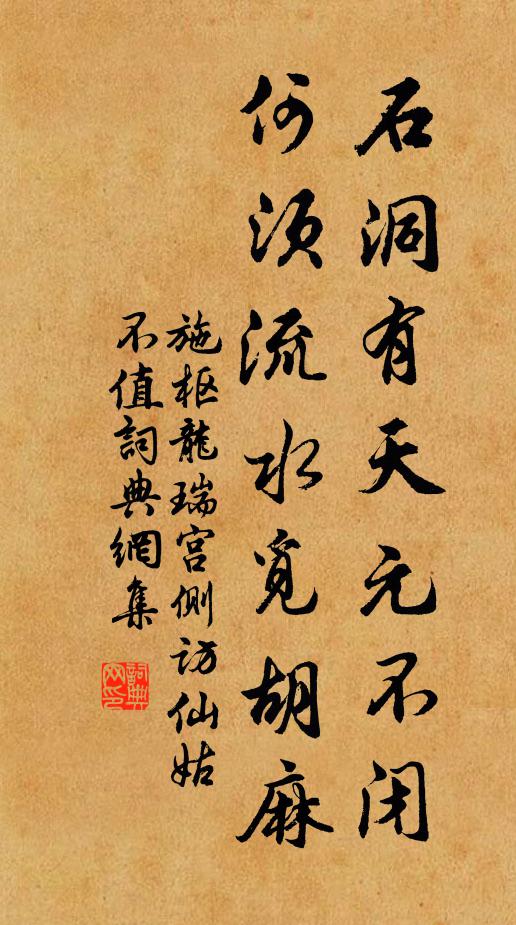 石洞有天元不闭
何须流水觅胡麻
施枢龍瑞宫側访仙姑
不值詞典網集
詞典网印